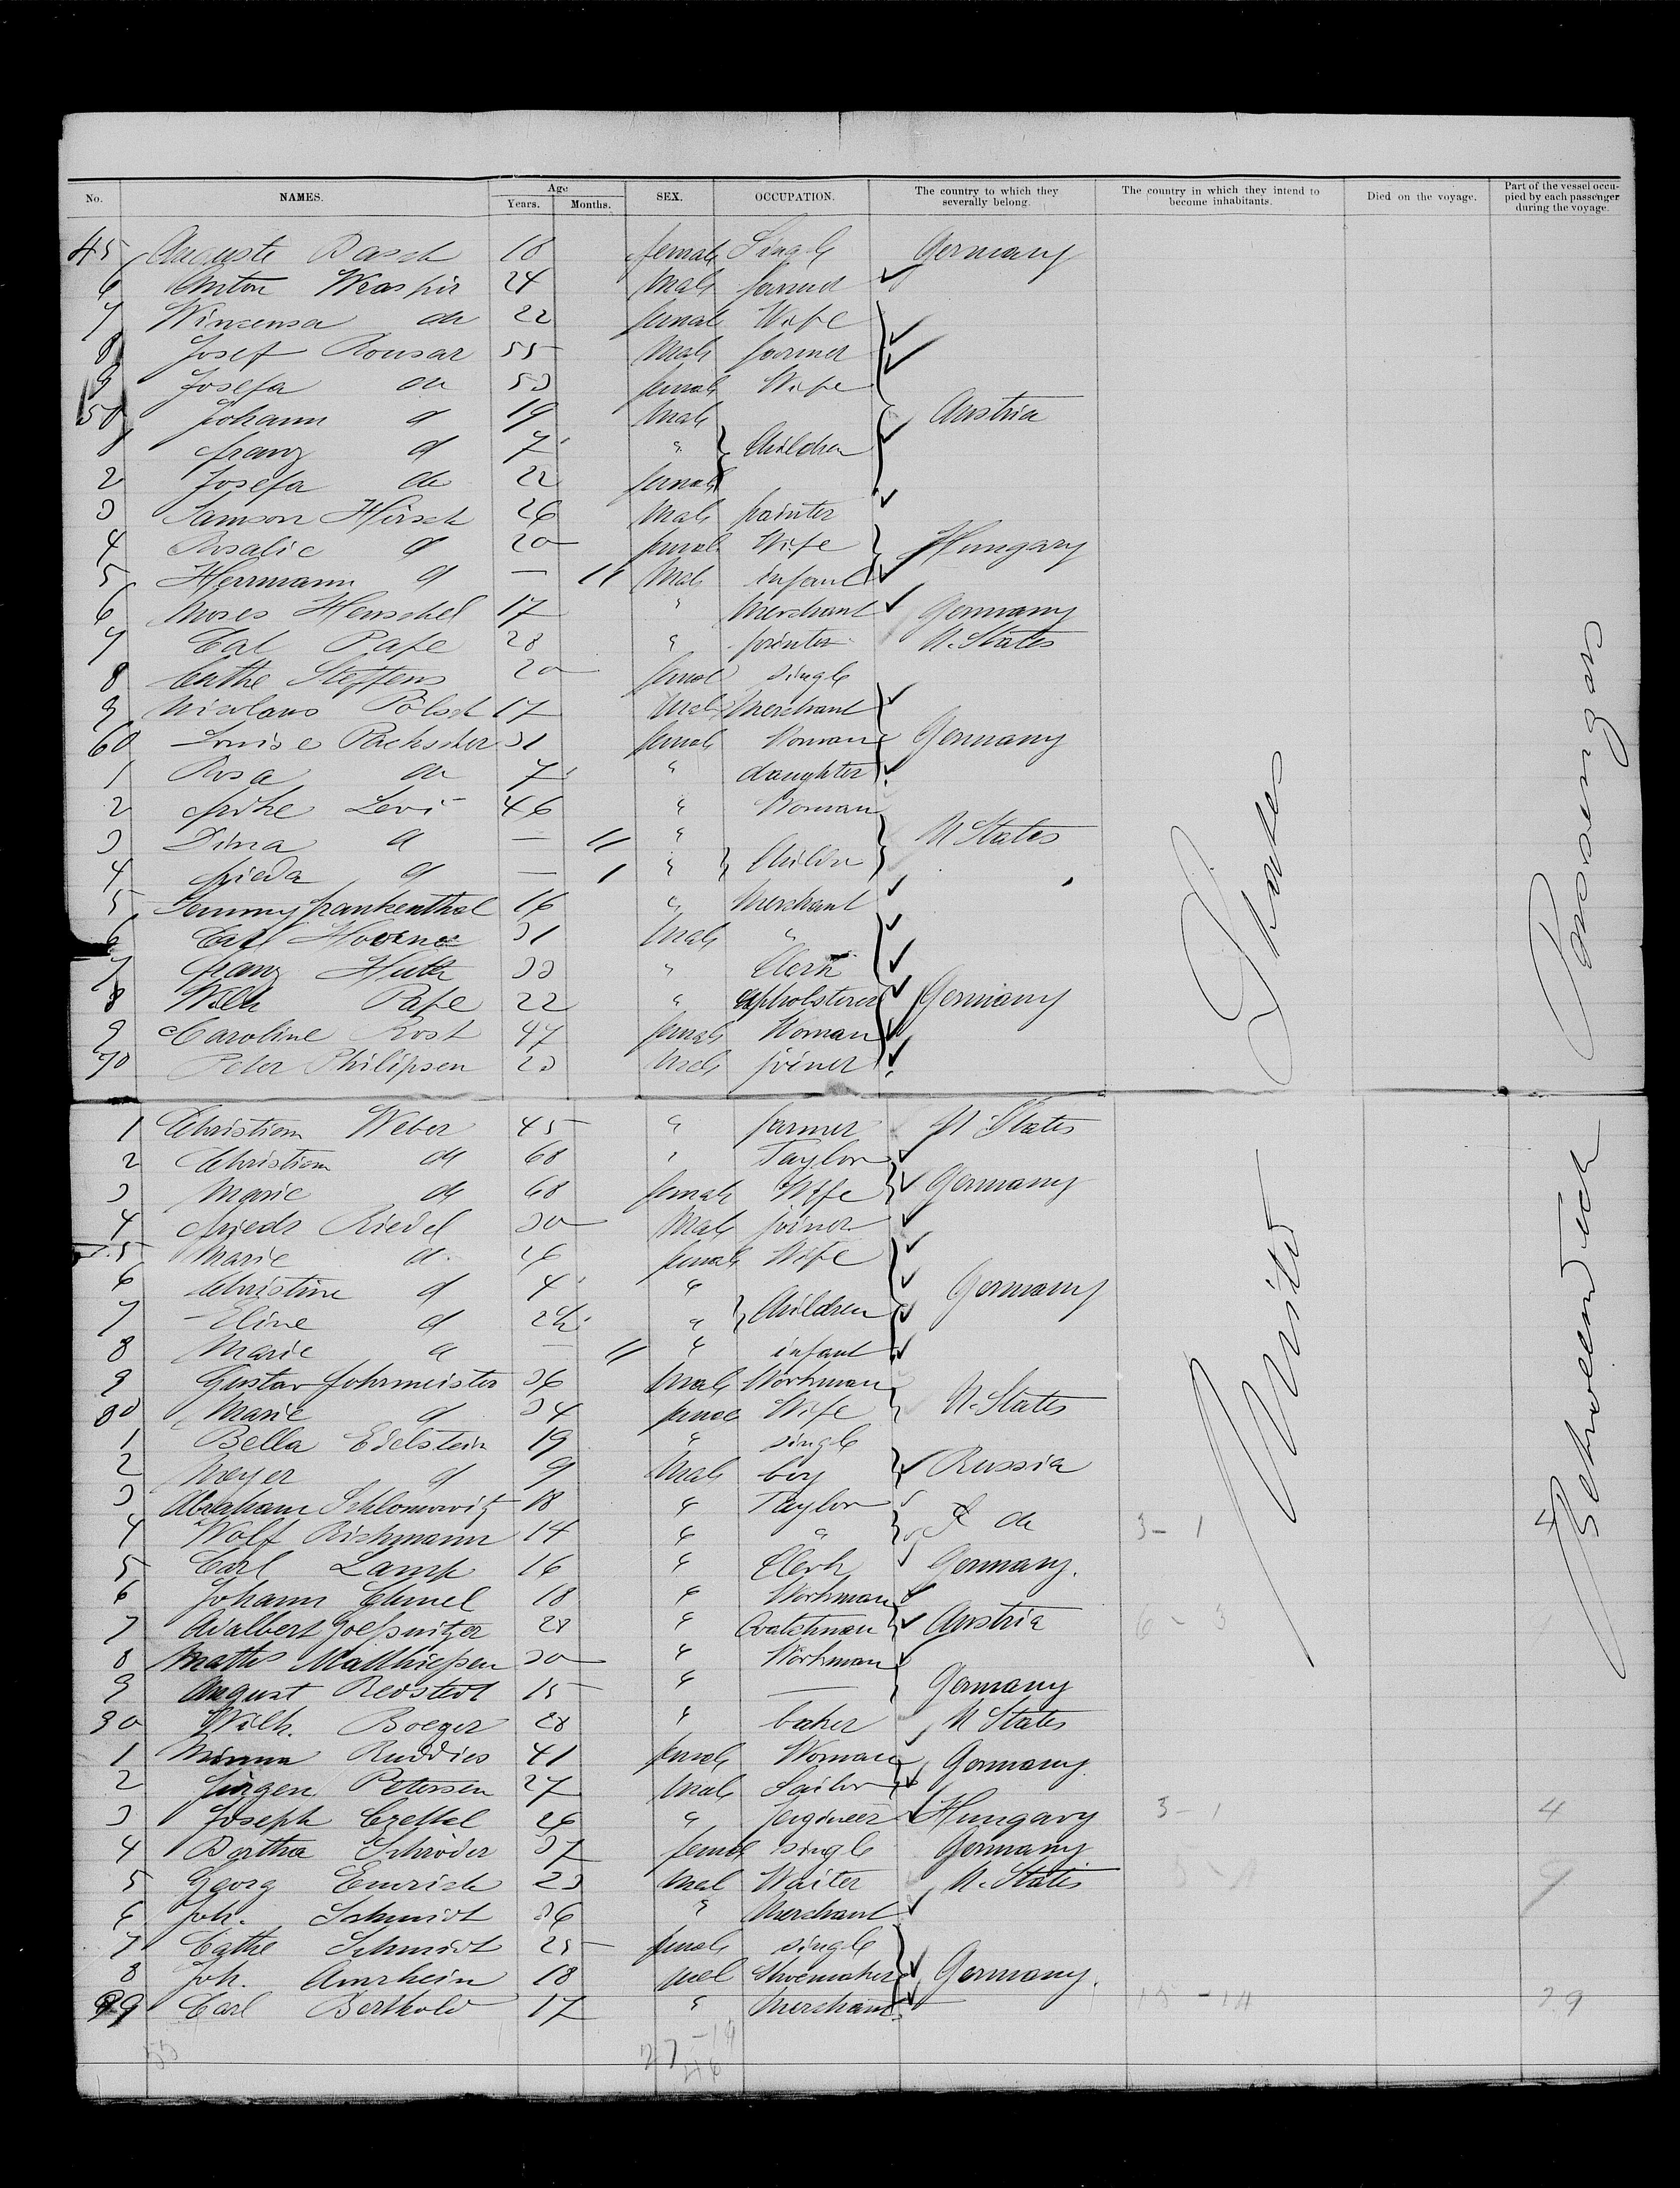 No. NAMES. Age Years. Months. SEX. OCCUPATION. The country to which they severally belong. The country in which they intend to become inhabitants. Died on the voyage. Part of the vessel occupied by each passenger during the voyage.
45 Auguste Rasch 18 female Single Germany
6 Anton 24 Male farmer
7 do 22 female Wife
8 Josef Rousar 55 Male farmer
9 Josefa do 50 female Wife
50 Johann d 19 Male Austria
1 franz d 7 " Children
2 Josefa do 22 female
3 Samson Hirsch 26 Male painter
4 Rosalie d 20 female Wife Hungary
5 Herrmann d — 11 Male infant
6 Moses Henschel 17 " Merchant Germany
7 Cal Pape 28 " painter U. States
8 Cathe Steffens 20 femal single
9 Nicolaus Pölsch 17 Male Merchant
60 Louise 31 female Woman Germany
1 Rosa do 7 " daughter
2 Levi 46 " Woman
3 Dina d — 11 " U States
4 frieda d — 1 " Childrn
5 Jenny frankenthal 16 " Merchant
6 Carl 31 Male "
7 franz Huth 33 " Clerk
8 Wilh Pape 22 " upholsterer Germany
9 Caroline Rost 47 female Woman
70 Peter Philipsen 23 Male joiner
1 Christian Weber 45 " farmer U States
2 Christian do 68 " Taylor
3 Marie do 68 female Wife Germany
4 friedr Riedel 30 Male joiner
5 Marie d. 26 female Wife
6 Christine d 4 " Germany
7 Eline d 2½ " Children
8 Marie d — 11 " infant
9 Gustav fohrmeister 36 Male Workman
80 Marie d 34 femal Wife U. States
1 Bella Edelstein 19 " single
2 Meyer d 9 Male boy Russia
3 Abraham Schlomowitz 18 " Taylor
4 Wolf Richmann 14 " " do 3-1 4
5 Carl Lamp 16 " Clerk Germany.
6 Johann Chmel 18 " Workman
7 Adalbert Goessnitzer 28 " Watchman Austria 6-3
8 Maths Matthiessen 30 " Workman
9 August Redstedt 15 " — Germany
90 Wilh. Boeger 28 " baker U States
1 Minna Ruddies 41 female Woman Germany
2 Jürgen Petersen 27 Male Sailor
3 Joseph 26 " Engineer Hungary 3-1 4
4 Bertha Schröder 37 female single Germany
5 Georg Emrich 23 Mal Waiter U. States 9
6 Joh. Schmidt 36 " Merchant
7 Cathe Schmidt 25 female single
8 Joh. Amrhein 18 mal Shoemaker Germany.
99 Carl Berthold 17 " Merchant 29
United States
Zwischendeck Passengers